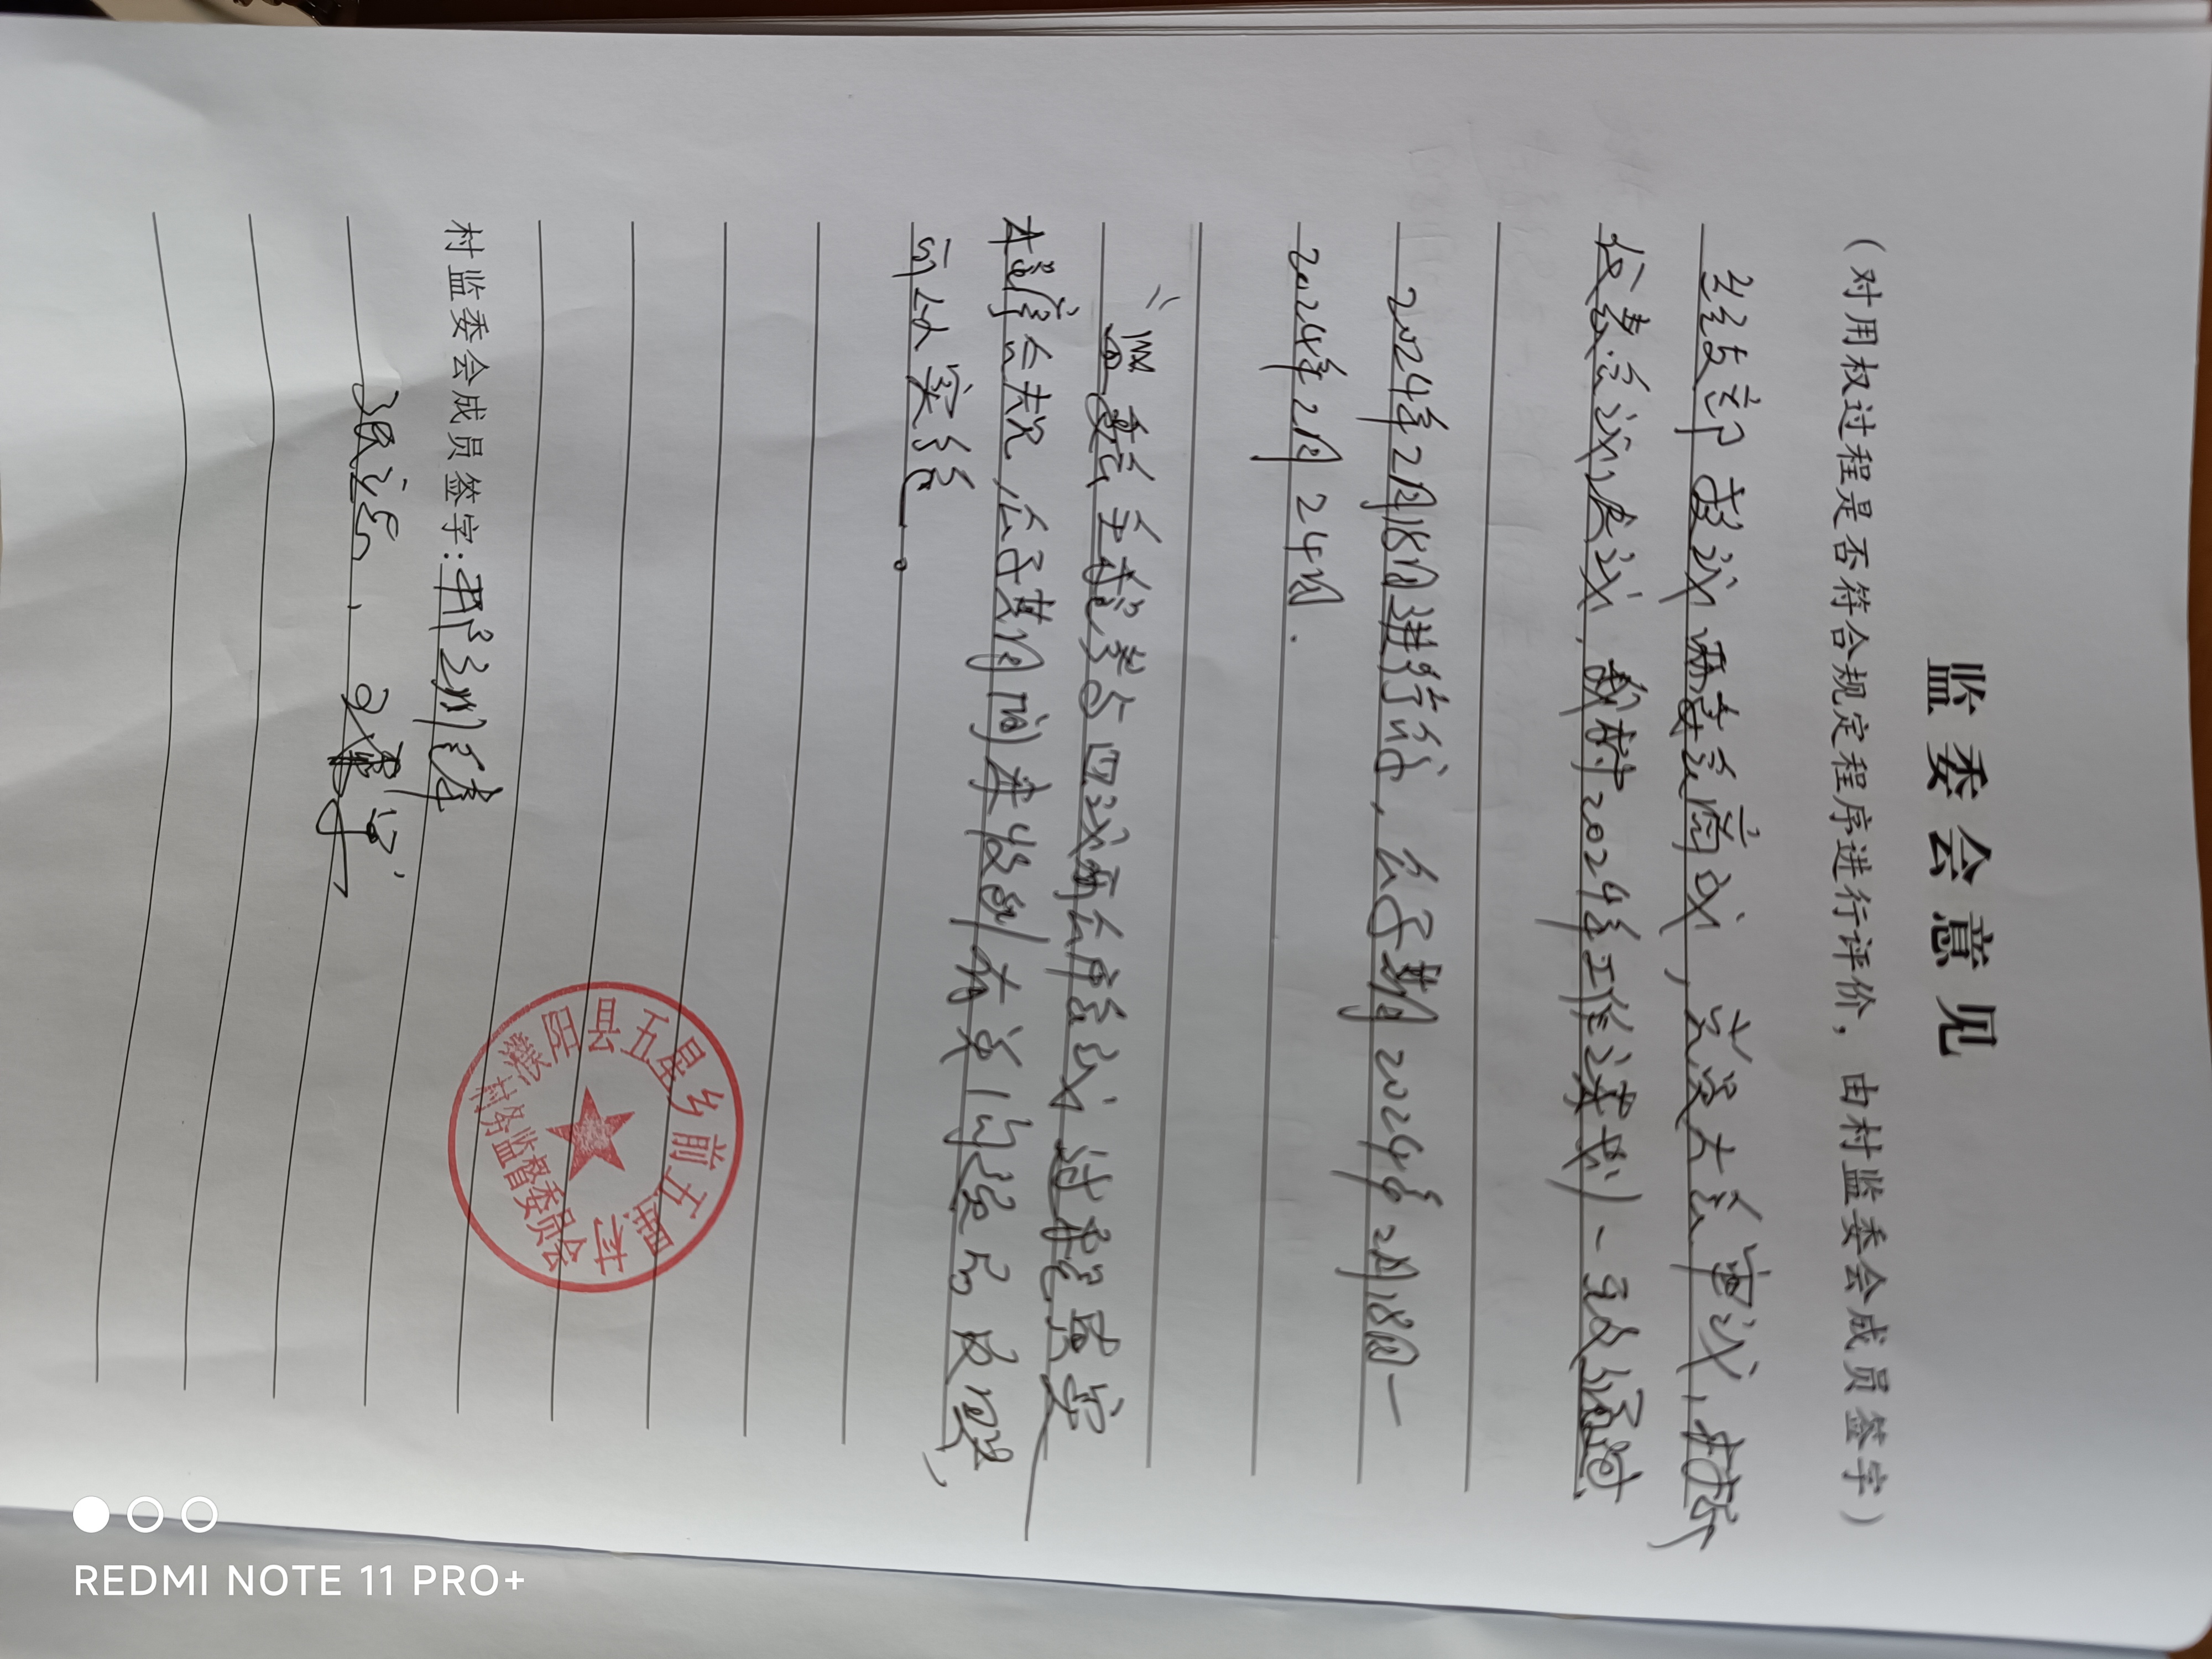 监委会意见
（对用权过程是否符合规定程序进行评价，由村监委会成员签字）
经支部提议 两委会商议，党员大会审议，村民
代表会议决议，我村2024年工作谋划一致通过
2024年2月18日进行公示，公示期2024年2月18日—
2024年2月24日.
监委会全程参与四议两公开会议，过程真实
程序合规，公示期间未收到有关问题的反映，
可以实施。
濮阳县五星乡前五星村
村务监督委员会
村监委会成员签字:
REDMI NOTE 11 PRO+